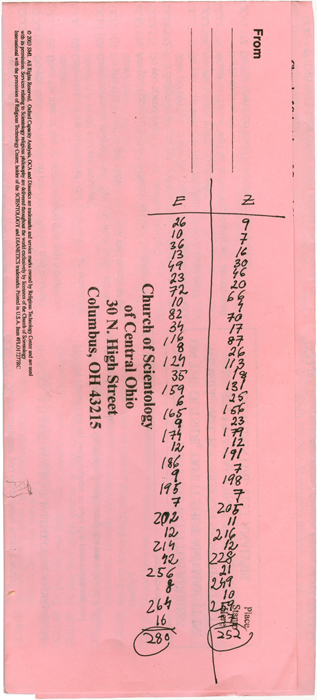 From
E
26
10
36
13
49
23
72
10
82
34
116
8
124
35
159
6
165
9
174
12
186
9
195
7
202
12
214
42
256
8
264
16
280
Z
9
7
16
30
46
20
66
4
70
17
87
26
113
18
131
25
156
23
179
12
191
7
198
7
205
11
216
12
228
21
249
10
259
252
Place
Stamp
Here
Church of Scientology
of Central Ohio
30 N. High Street
Columbus, OH 43215
© 2003 IMI. All Rights Reserved. Oxford Capacity Analysis, OCA and Dianetics are trademarks and service marks owned by Religious Technology Center and are used
with its permission. Services relating to Scientology religious philosophy are delivered throughout the world exclusively by licensees of the Church of Scientology
International with the permission of Religious Technology Center, holder of the SCIENTOLOGY and DIANETICS trademarks. Printed in U.S.A.